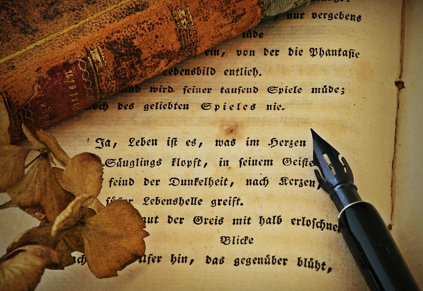 nur vergebens
müde
ein, von der die Phantasie
Lebensbild entlich.
und wird seiner tausend Spiele müde;
doch des geliebten Spieles nie.
Ja, Leben ist es, was im Herzen
Säuglings klopft, in seinem Geiste
feind der Dunkelheit, nach Kerzen,
Lebenshelle greift.
der Greis mit halb erloschnem
Blicke
Ufer hin, das gegenüber blüht,